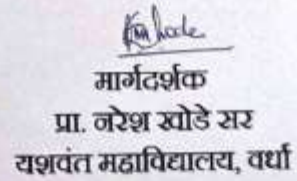 मार्गदर्शक
प्रा. नरेश खोडे सर
यशवंत महाविद्यालय, वर्धा